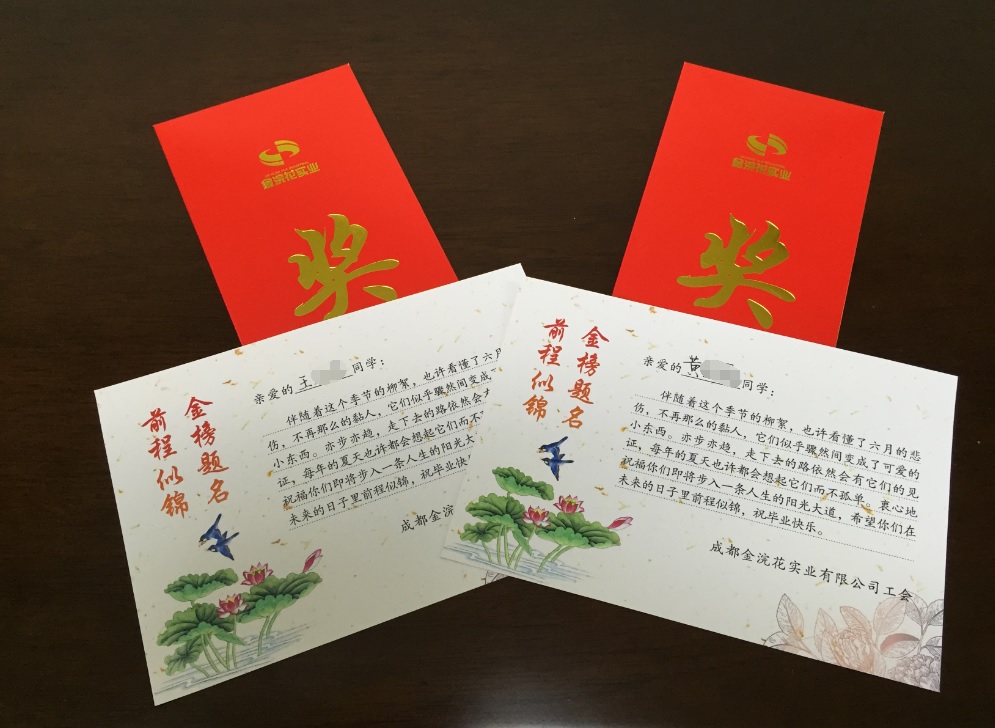 金浣花实业
奖
金浣花实业
奖
金榜题名
前程似锦
亲爱的王 同学：
伴随着这个季节的柳絮，也许看懂了六月
伤，不再那么的黏人，它们似乎骤然间变成
小东西。亦步亦趋，走下去的路依然会
证，每年的夏天也许都会想起它们而不
祝福你们即将步入一条人生的阳光大
未来的日子里前程似锦，祝毕业快
成都金浣
金榜题名
前程似锦
亲爱的黄 同学：
伴随着这个季节的柳絮，也许看懂了六月的悲
伤，不再那么的黏人，它们似乎骤然间变成了可爱的
小东西。亦步亦趋，走下去的路依然会有它们的见
证，每年的夏天也许都会想起它们而不孤单。衷心地
祝福你们即将步入一条人生的阳光大道，希望你们在
未来的日子里前程似锦，祝毕业快乐。
成都金浣花实业有限公司工会